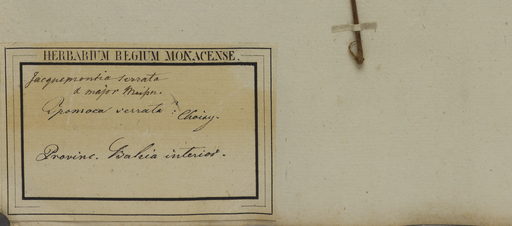 HERBARIUM REGIUM MONACENSE.
Jacquemontia serrata
α major Meisn.
Ipomoea serrata Choisy.
Provinc. Bahia interior.